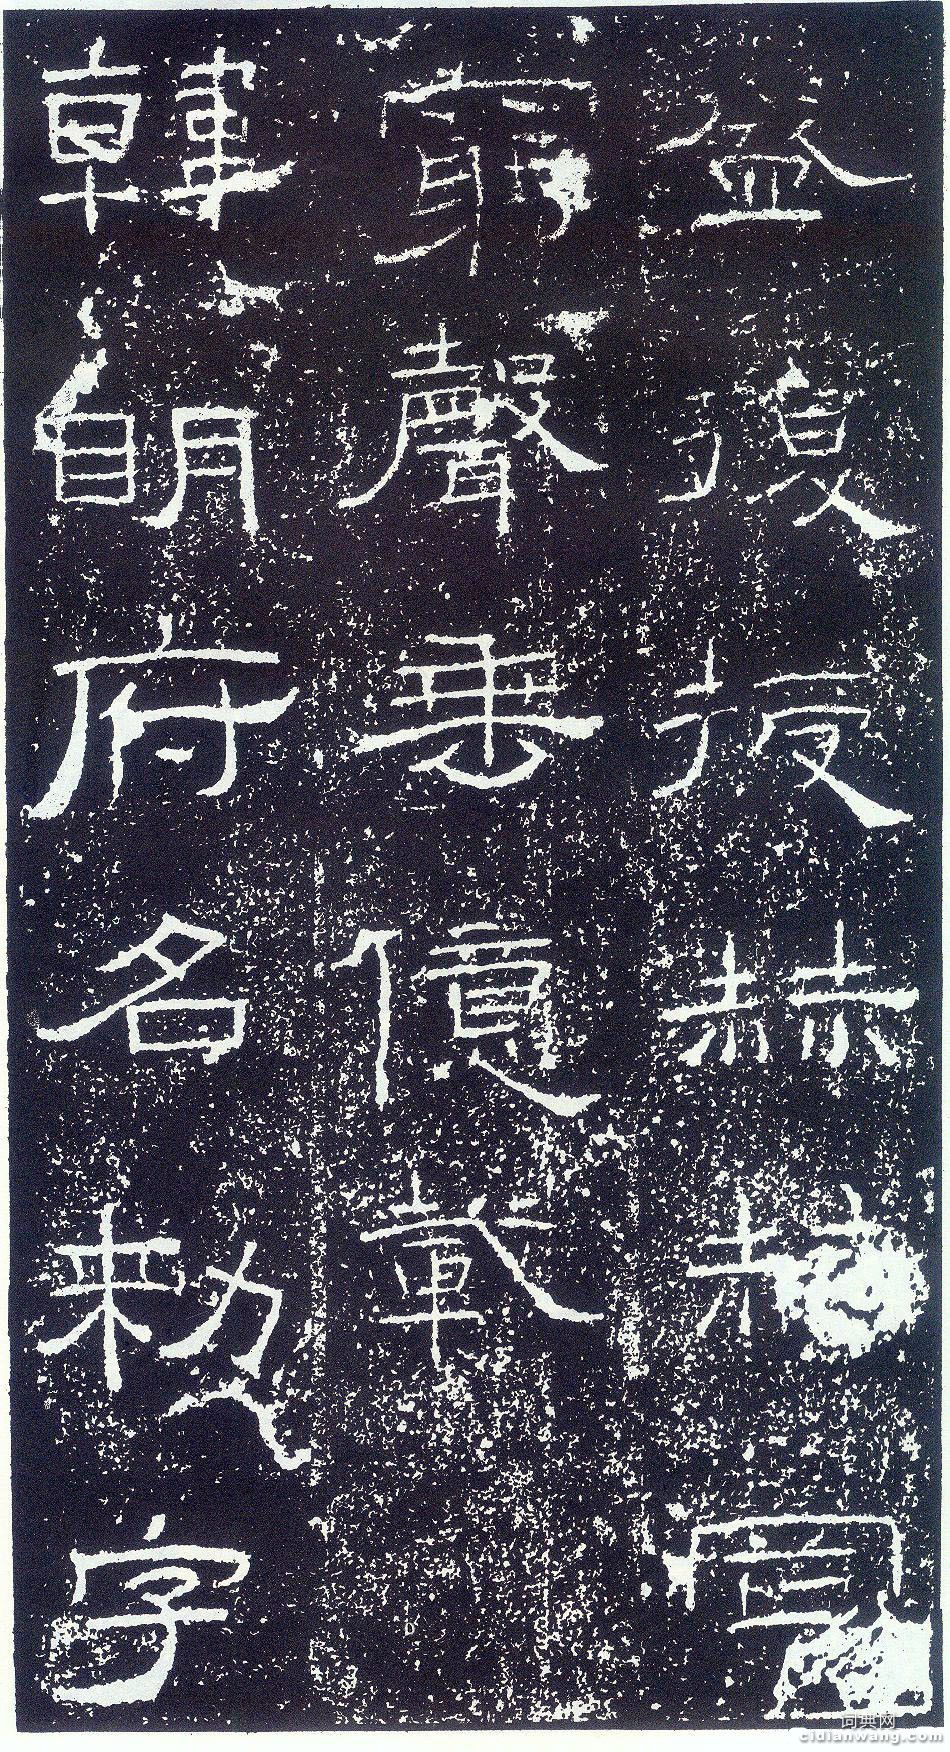 益復授赫赫罔
窮聲垂億載
韓明府名勑字
词典网
cidianwang.com